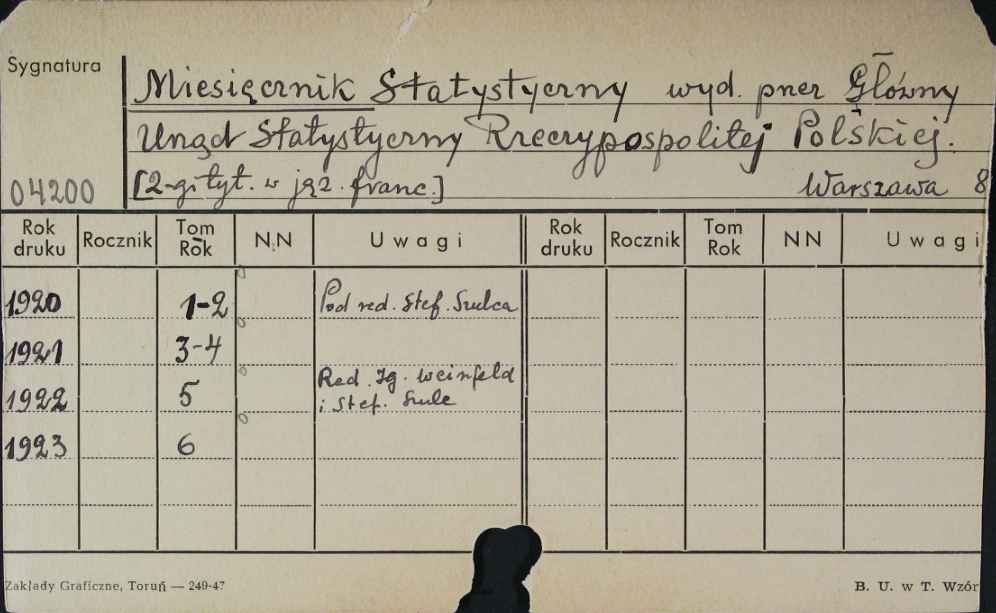 Sygnatura
Miesięcznik Statystyczny wyd. przez Główny
Urząd Statystyczny Rzeczypospolitej Polskiej.
04200 [2-gi tyt. w jęz. franc.] Warszawa 8
Rok druku Rocznik Tom Rok NN Uwagi Rok druku Rocznik Tom Rok NN Uwagi
1920 1-2 0 Pod red. Stef. Szulca
1921 3-4 0
1922 5 0 Red. Ig. Weinfeld
i Stef. Szulc
1923 6 0
Zakłady Graficzne, Toruń — 249-47 B. U. w T. Wzór